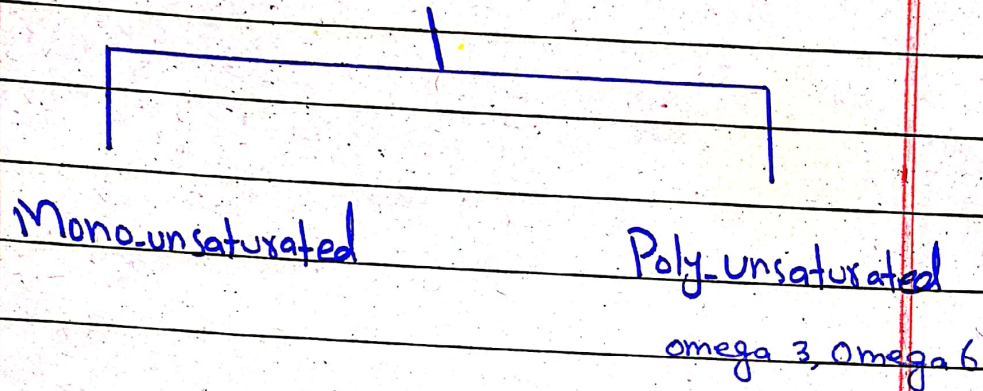 Mono-unsaturated
Poly-unsaturated
omega 3, Omega 6